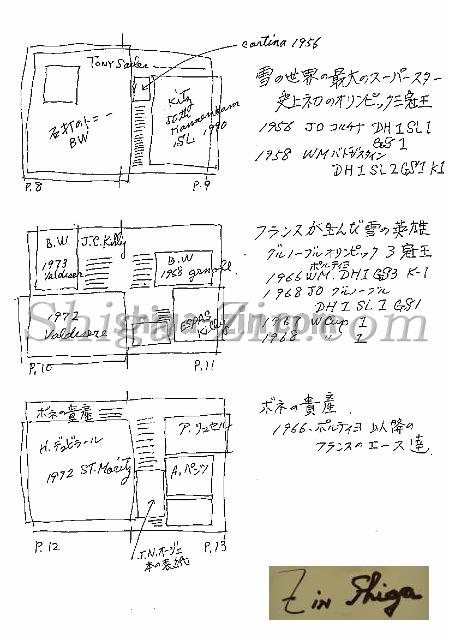 cortina 1956
TONY Sailer
Kitz
50th
Hahnenkamm
SL 1990
石打のトニー
BW
P.8
P.9
雪の世界の最大のスーパースター
史上初のオリンピック三冠王
1956 JO コルチナ DH1 SL1
GS1
1958 WM バドガスタイン
DH1 SL2 GS1 K1
B.W
1973
Valdisere
J.C. Killy
B.W
1968 grenoble
1972
Valdisere
ESPAS
Killy
P.10
P.11
フランスが生んだ雪の英雄
グルノーブルオリンピック 3冠王
ポルティヨ
1966 WM. DH1 GS3 K-1
1968 JO グルノーブル
DH1 SL1 GS1
1967 W Cup 1
1968 〃 1
ボネの貴産
H.デュビラール
1972 ST.Moritz
ア.リュセル
A.ペンツ
J.N.オージェ
本の表紙
P.12
P.13
ボネの貴産
1966.ポルティヨ以降の
フランスのエース達
Shiga-Zin.com
Z in Shiga